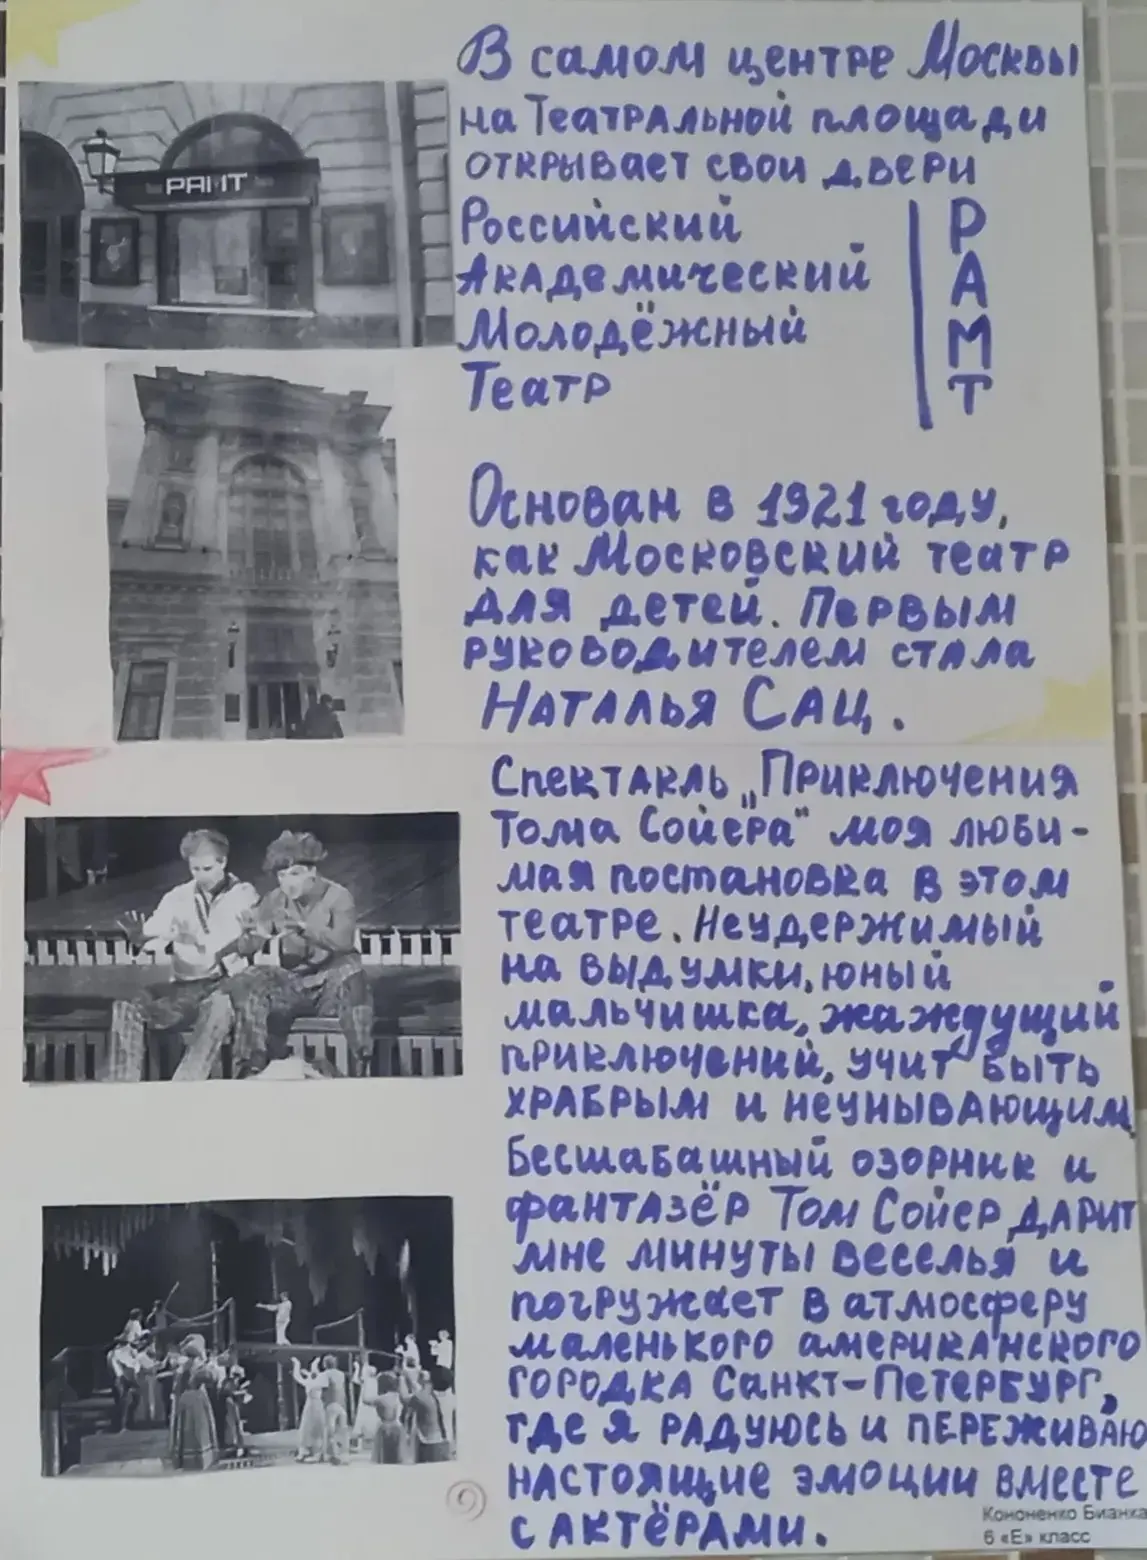 В самом центре Москвы
на Театральной площади
открывает свои двери
Российский
Академический
Молодёжный
Театр
РАМТ
РАМТ
Основан в 1921 году,
как Московский театр
для детей. Первым
руководителем стала
Наталья Сац.
Спектакль „Приключения
Тома Сойера“ моя люби-
мая постановка в этом
театре. Неудержимый
на выдумки, юный
мальчишка, жаждущий
приключений, учит быть
храбрым и неунывающим.
Бесшабашный озорник и
фантазёр Том Сойер дарит
мне минуты веселья и
погружает в атмосферу
маленького американского
городка Санкт-Петербург,
где я радуюсь и переживаю
настоящие эмоции вместе
с актёрами.
9
Кононенко Бианка
6 «Е» класс